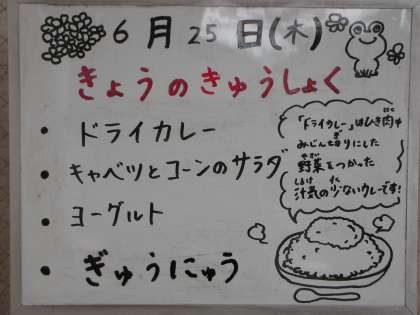 6月25日(木)
きょうのきゅうしょく
・ドライカレー
・キャベツとコーンのサラダ
・ヨーグルト
・ぎゅうにゅう
「ドライカレー」はひき肉や
みじん切りにした
野菜をつかった
汁気の少ないカレーです!